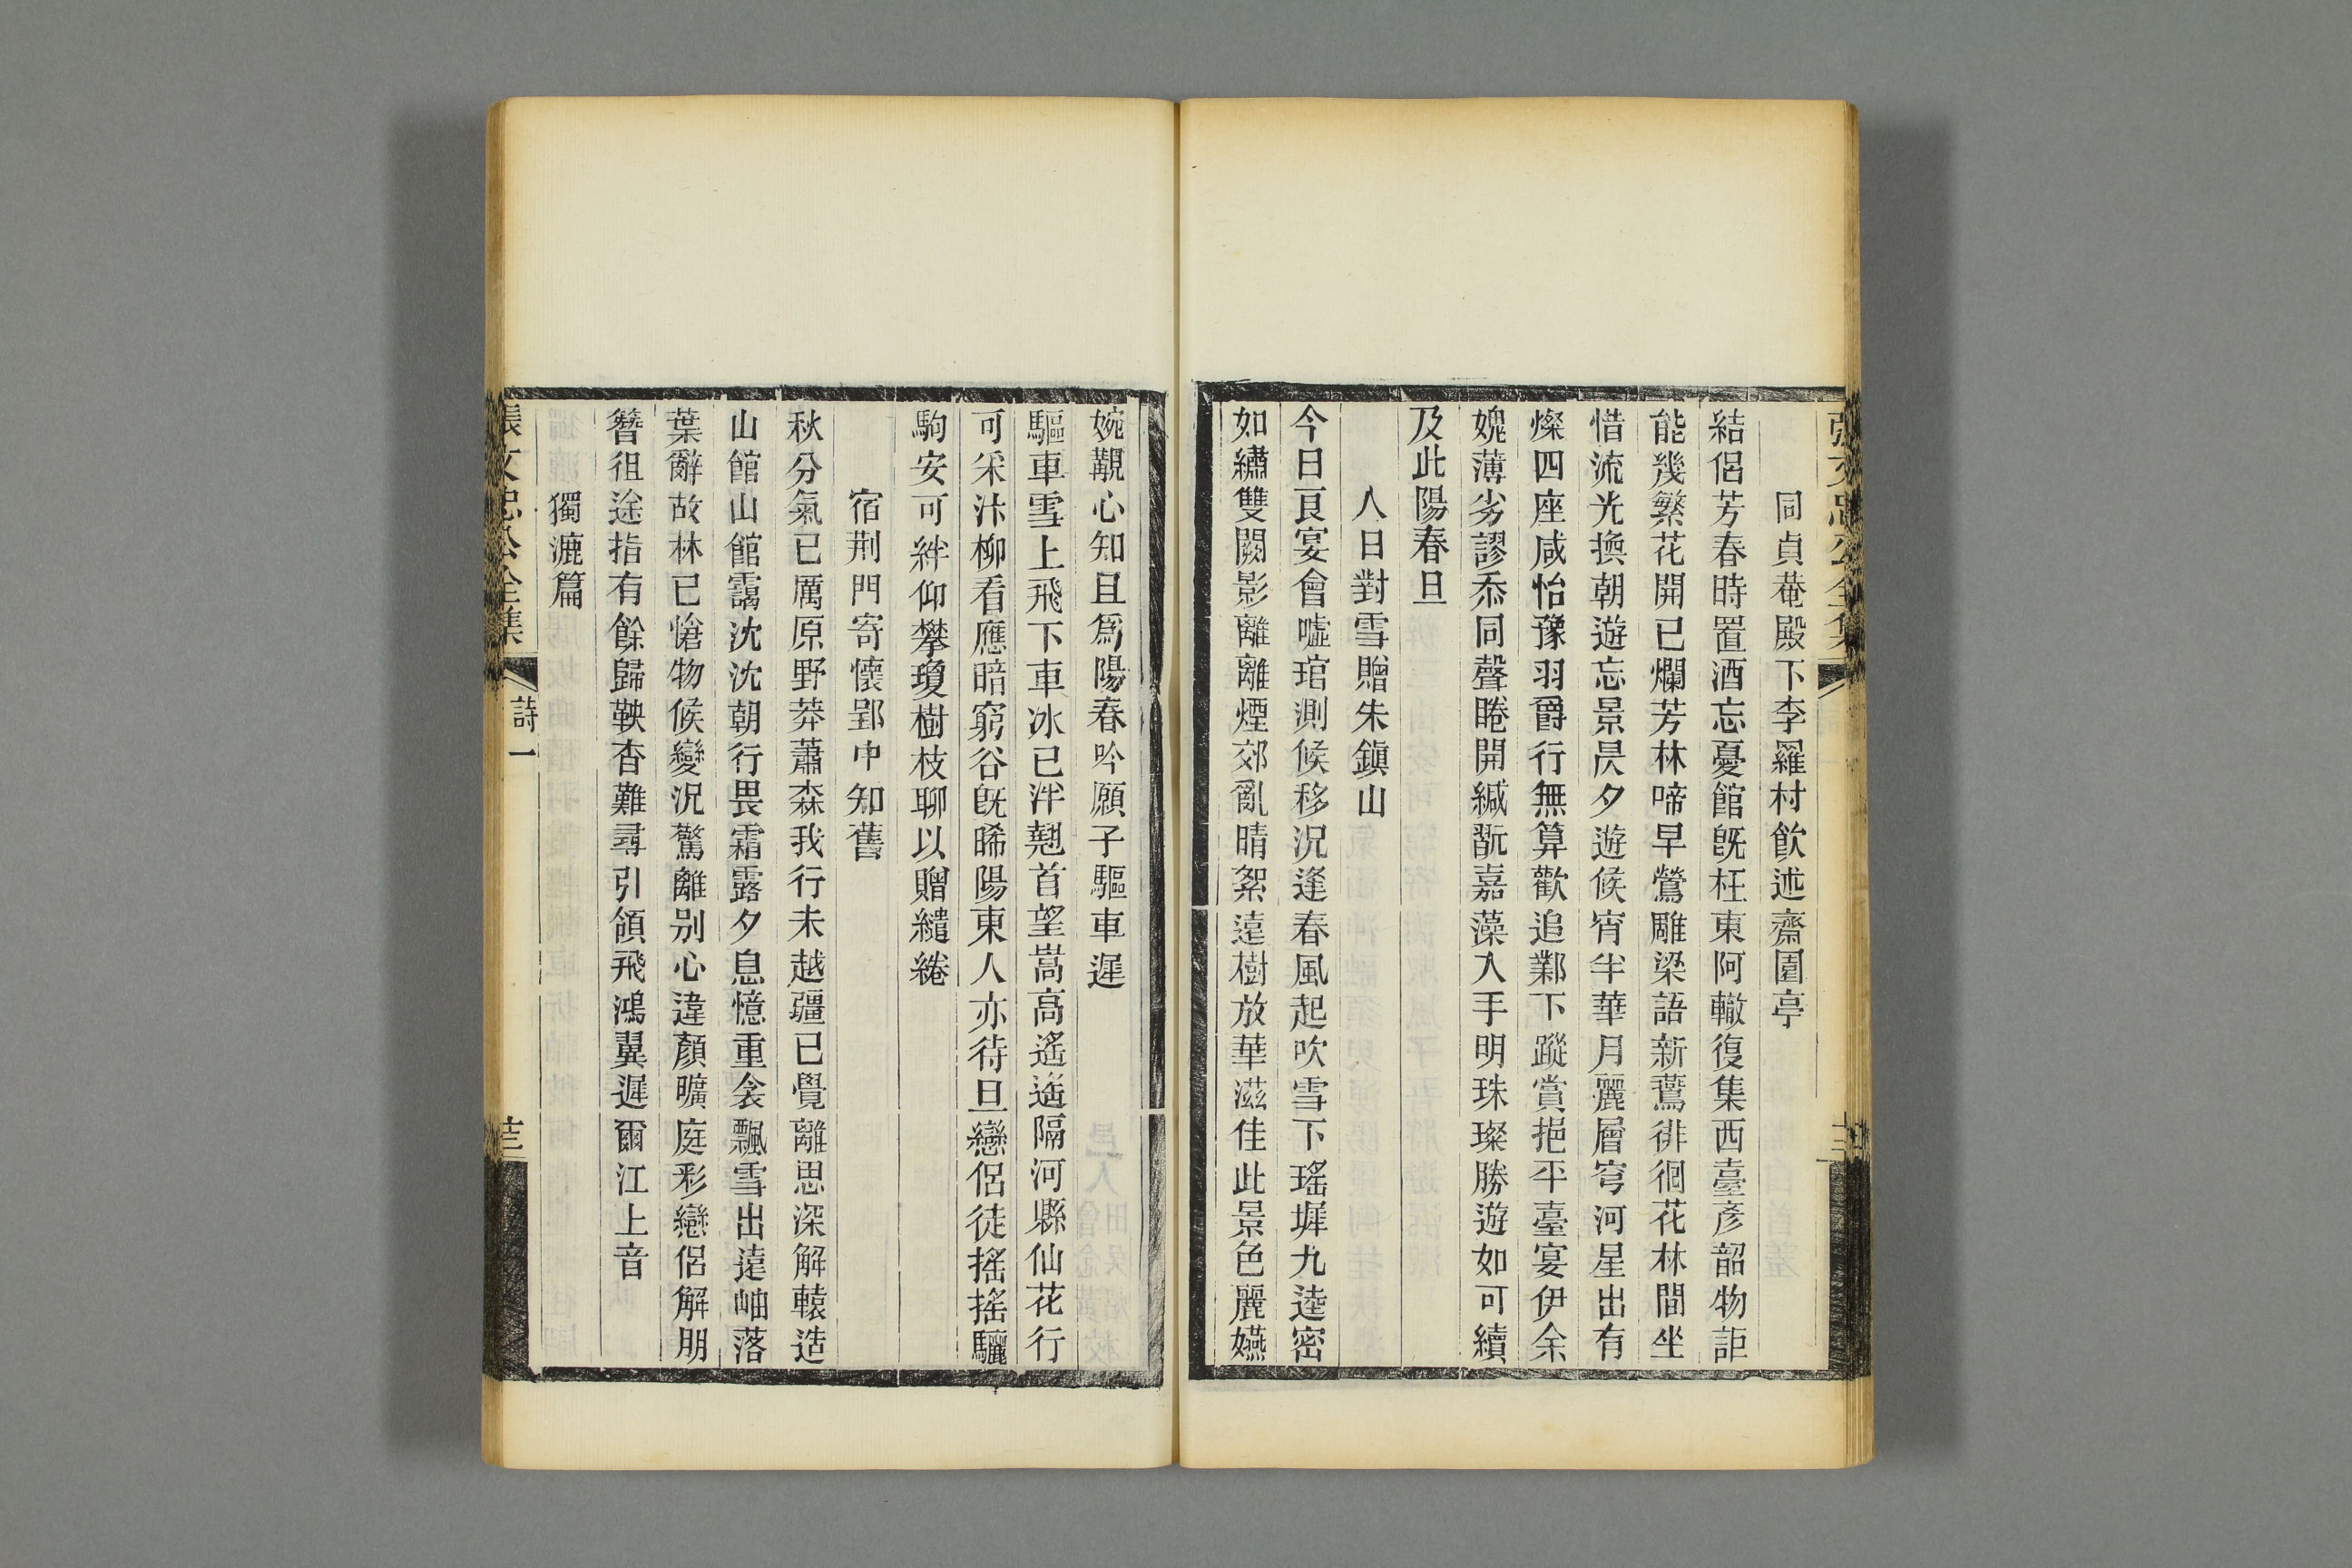 同貞菴殿下李羅村飲述齋園亭
結侶芳春時置酒忘憂館旣枉東阿轍復集西臺彥韶物詎
能幾繁花開已爛芳林啼早鶯雕梁語新鷰徘徊花林間坐
惜流光換朝遊忘景昃夕遊候宵半華月麗層穹河星出有
燦四座咸怡豫羽爵行無算歡追鄴下蹤賞挹平臺宴伊余
媿薄劣謬忝同聲睠開緘翫嘉藻入手明珠璨勝遊如可續
及此陽春旦
人日對雪贈朱鎭山
今日良宴會噓琯測候移況逢春風起吹雪下瑤墀九逵密
如繡雙闕影離離煙郊亂晴絮遠樹放華滋佳此景色麗嬿
婉覯心知且爲陽春吟願子驅車遲
驅車雪上飛下車冰已泮翹首望嵩高遙遙隔河縣仙花行
可采汴柳看應暗窮谷旣晞陽東人亦待旦戀侶徒搖搖驪
駒安可絆仰攀瓊樹枝聊以贈繾綣
宿荆門寄懷郢中知舊
秋分氣已厲原野莽蕭森我行未越疆已覺離思深解轅造
山館山館靄沈沈朝行畏霜露夕息憶重衾飄雪出遠岫落
葉辭故林已愴物候變況驚離別心違顏曠庭彩戀侶解朋
簪徂途指有餘歸鞅杳難尋引領飛鴻翼遲爾江上音
獨漉篇
張文忠公全集
詩一